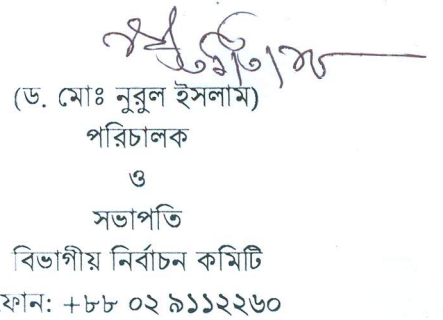 (ড. মোঃ নুরুল ইসলাম)
পরিচালক
ও
সভাপতি
বিভাগীয় নির্বাচন কমিটি
ফোন: +৮৮ ০২ ৯১১২২৬০